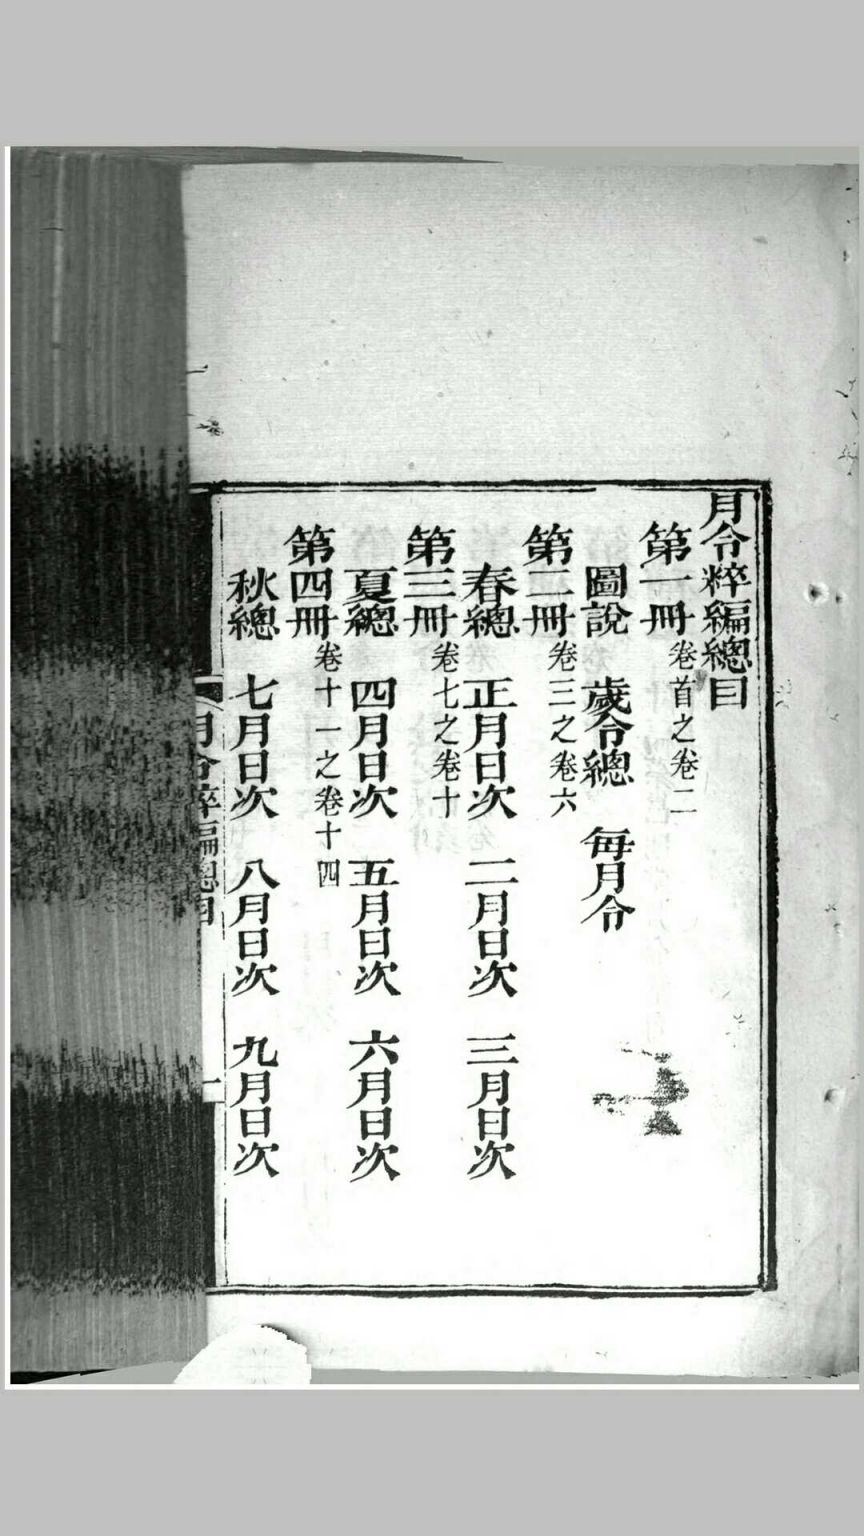 月令粹編總目
第一冊卷首之卷二
圖說　歲令總　每月令
第二冊卷三之卷六
春總　正月日次　二月日次　三月日次
第三冊卷七之卷十
夏總　四月日次　五月日次　六月日次
第四冊卷十一之卷十四
秋總　七月日次　八月日次　九月日次
月令粹編總目　一